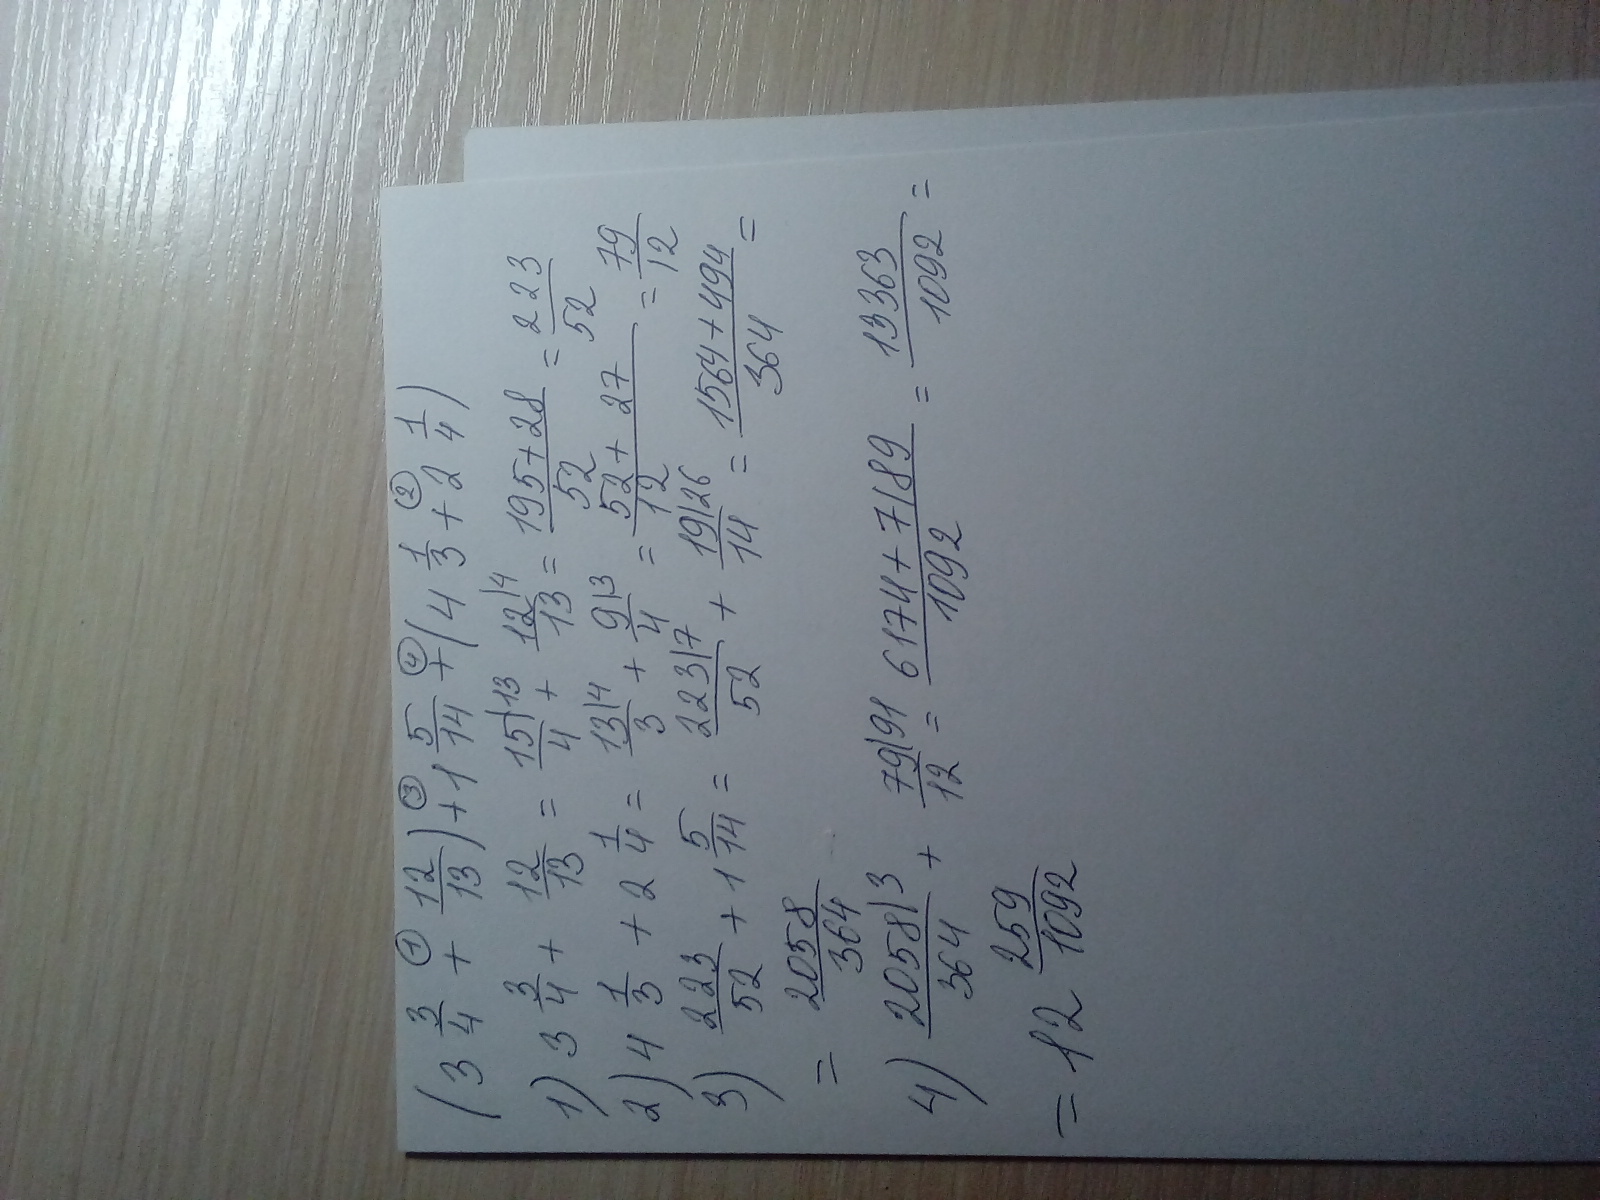 (3 3/4 +① 12/13) +③ 1 5/14 +④ (4 1/3 +② 2 1/4)
1) 3 3/4 + 12/13 = 15|13/4 + 12|4/13 = 195+28/52 = 223/52
2) 4 1/3 + 2 1/4 = 13|4/3 + 9|3/4 = 52+27/12 = 79/12
3) 223/52 + 1 5/14 = 223|7/52 + 19|26/14 = 1564+494/364 =
= 2058/364
4) 2058|3/364 + 79|91/12 = 6174+7189/1092 = 13363/1092 =
= 12 259/1092